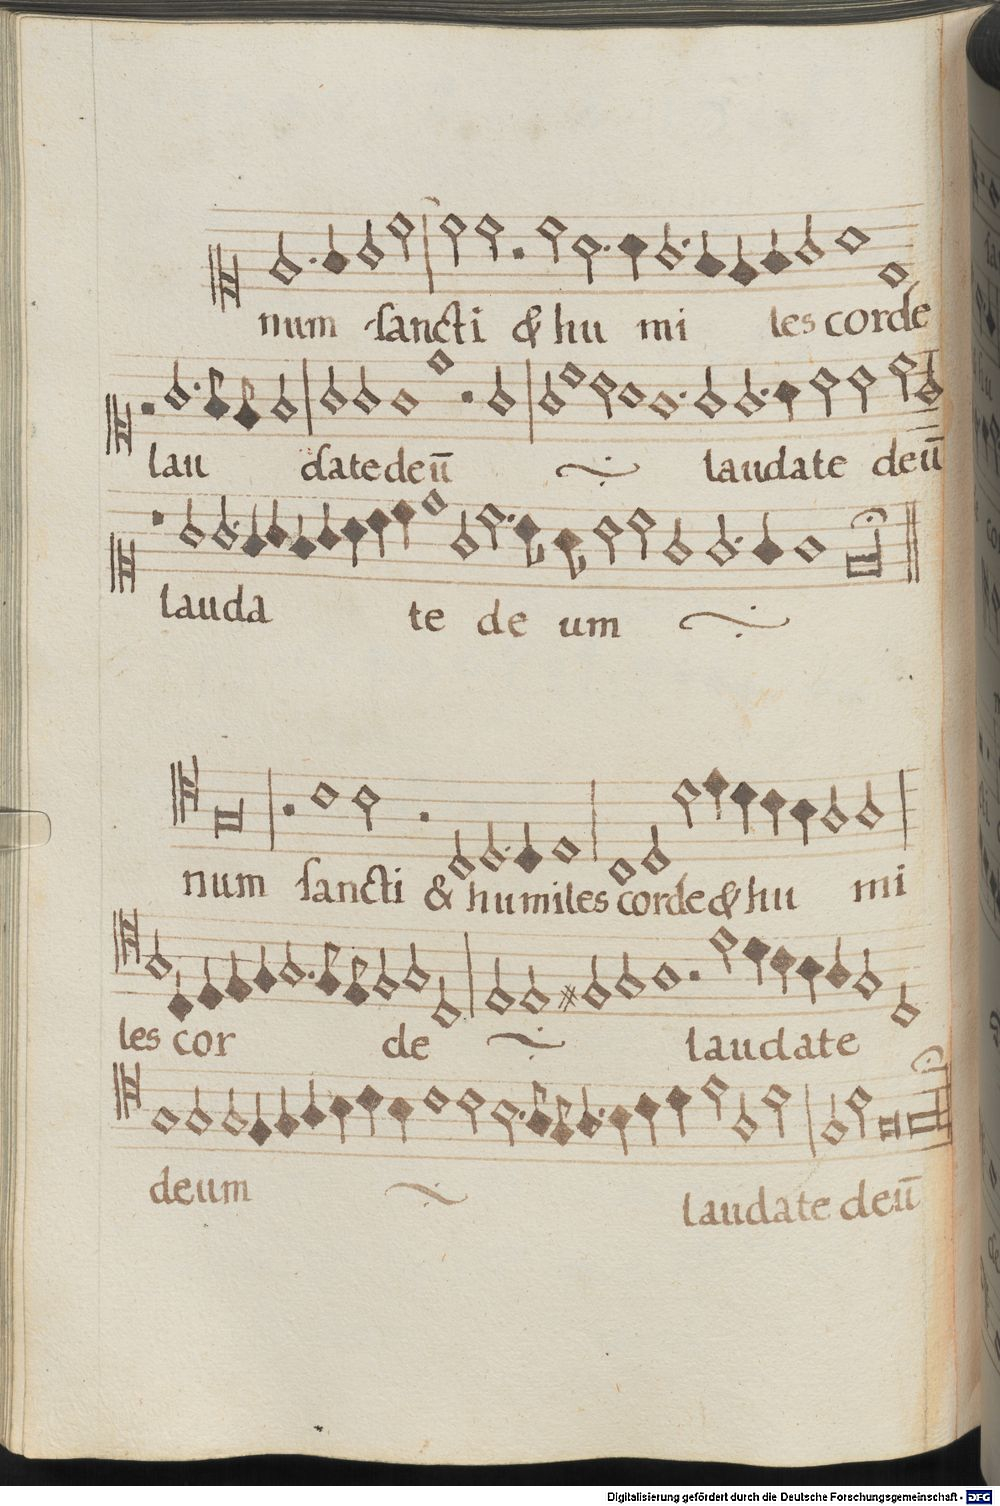 num sancti & hu mi les corde
lau date deū laudate deū
lauda te de um
num sancti & humiles corde & hu mi
les cor de laudate
deum laudate deū
Digitalisierung gefördert durch die Deutsche Forschungsgemeinschaft - DFG